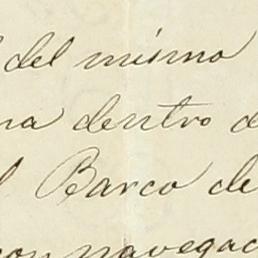 del mismo
na dentro d
l Barco de
con navegac